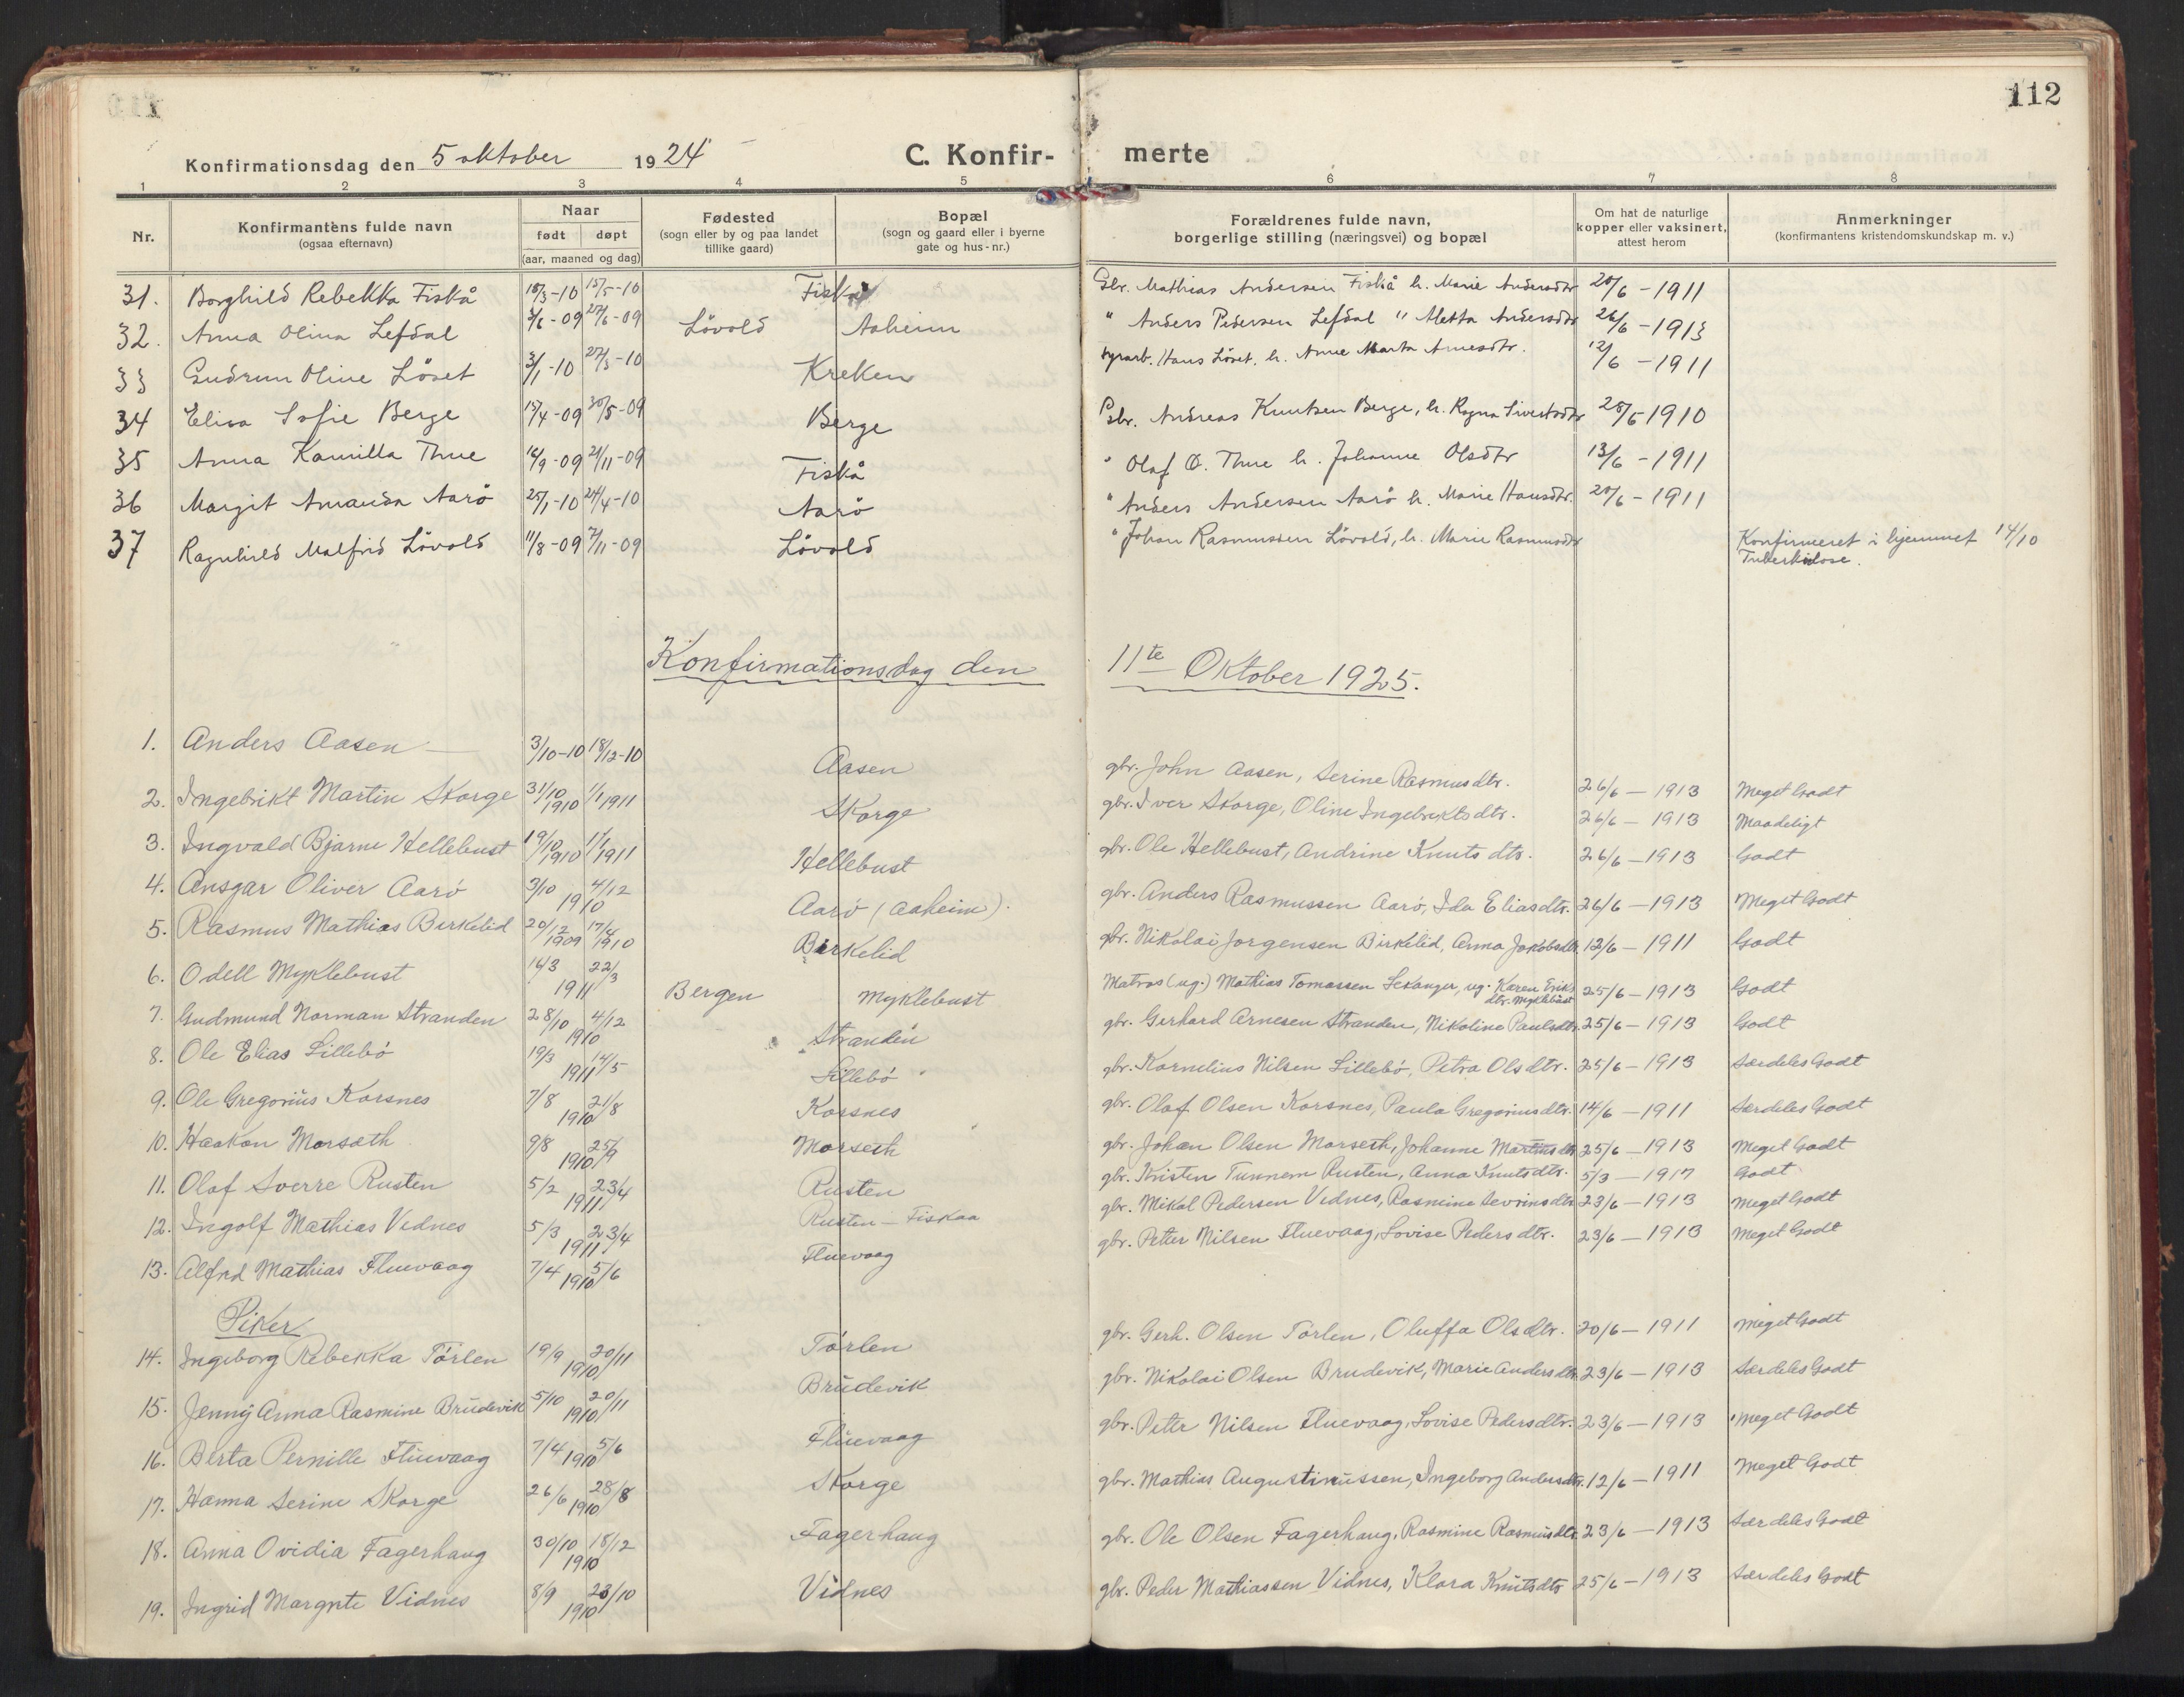 112
Konfirmationsdag den 5 oktober 1924 C. Konfir- merte
1 2 3 4 5 6 7 8
Nr.
Konfirmantens fulde navn
(ogsaa efternavn)
Naar
født døpt
(aar, maaned og dag)
Fødested
(sogn eller by og paa landet
tillike gaard)
Bopæl
(sogn og gaard eller i byerne
gate og hus-nr.)
Forældrenes fulde navn,
borgerlige stilling (næringsvei) og bopæl
Om hat de naturlige
kopper eller vaksinert,
attest herom
Anmerkninger
(konfirmantens kristendomskundskap m. v.)
31. Borghild Rebekka Fiskå -10 15/5-10 Fiskå Gbr. Mathias Andersen Fiskå h. Marie Andersdtr 20/6 - 1911
32. Anna Olina Lefdal -09 27/6-09 Lövold Aaheim " Anders Pedersen Lefdal " Aletta Andersdtr 26/6 - 1913
33 Gudrun Oline Löset 3/1-10 27/3-10 Kreken Hans Löset, h. Anne Marta Arnesdtr. 12/6 - 1911
34 Elisa Sofie Berge 15/4-09 30/5-09 Berge Gbr. Andreas Knutsen Berge, h. Ragna Sivertsdtr 1910
35 Anna Kamilla Thue 16/9-09 21/11-09 Fiskå " Olaf O. Thue h. Johanne Olsdtr 13/6 - 1911
36 Margit Amanda Aarö 25/1-10 24/4-10 Aarö " Anders Andersen Aarö h. Marie Hansdtr. 20/6 - 1911
37 Ragnhild Malfrid Lövold 11/8-09 7/11-09 Lövold " Johan Rasmussen Lövold, h. Marie Rasmusdtr Konfirmeret i hjemmet 14/10
Tuberkulose.
Konfirmationsdag den 11te Oktober 1925.
1. Anders Aasen 3/10-10 18/12-10 Aasen gbr. John Aasen, Serine Rasmusdtr. 26/6 - 1913 Meget Godt
2. Ingebrikt Martin Skorge 31/10 1910 1/1 1911 Skorge gbr. Iver Skorge, Oline Ingebrektsdtr. 26/6 - 1913 Maadeligt
3. Ingvald Bjarne Hellebust 19/10 1910 1/1 1911 Hellebust gbr. Ole Hellebust, Andrine Knutsdtr. 26/6 - 1913 Godt
4. Ansgar Oliver Aarö 3/10 4/12 1910 Aarö (Aaheim). gbr. Anders Rasmussen Aarö, Ida Eliasdtr. 26/6 - 1913 Meget Godt
5. Rasmus Mathias Birkelid 20/12 1909 17/4 1910 Birkelid gbr. Nikolai Jorgensen Birkelid, Anna Jakobsdtr. 12/6 - 1911 Godt
6. Odell Myklebust 16/3 22/3 1911 Bergen Myklebust Matros (ug.) Mathias Tomassen Sekanger, ug. Karen Eriks
dtr. Myklebust 25/6 - 1913 Godt
7. Gudmund Norman Stranden 28/10 4/12 1910 Stranden gbr. Gerhard Arnesen Stranden, Nikoline Paulsdtr. 25/6 - 1913 Godt
8. Ole Elias Lillebö 19/3 14/5 1911 Lillebö gbr. Kornelius Nilsen Lillebö, Petra Olsdtr. 25/6 - 1913 Særdeles Godt
9. Ole Gregorius Korsnes 7/8 21/8 1910 Korsnes gbr. Olaf Olsen Korsnes, Paula Gregoriusdtr. 14/6 - 1911 Særdeles Godt
10. Haakon Morsæth 9/8 25/9 1910 Morseth gbr. Johan Olsen Morseth, Johanne Martinsdtr 25/6 - 1913 Meget Godt
11. Olaf Sverre Rusten 5/2 23/4 1911 Rusten gbr. Kristen Tunnem Rusten, Anna Knutsdtr. 5/3 - 1917 Godt
12. Ingolf Mathias Vidnes 5/3 23/4 1911 Rusten - Fiskaa gbr. Mikal Pedersen Vidnes, Rasmine Sevrinsdtr 23/6 - 1913 Meget Godt
13. Alfred Mathias Fluevaag 7/4 5/6 1910 Fluevaag gbr. Petter Nilsen Fluevaag, Lovise Pedersdtr. 23/6 - 1913 Meget Godt
Piker
14. Ingeborg Rebekka Törlen 19/9 20/11 1910 Törlen gbr. Gerh. Olsen Törlen, Oluffa Olsdtr. 20/6 - 1911 Meget Godt
15. Jenny Anna Rasmine Brudevik 5/10 20/11 1910 Brudevik gbr. Nikolai Olsen Brudevik, Marie Andersdtr. 23/6 - 1913 Særdeles Godt
16. Berta Pernille Fluevaag 7/4 5/6 1910 Fluevaag gbr. Petter Nilsen Fluevaag, Lovise Pedersdtr. 23/6 - 1913 Meget Godt
17. Hanna Serine Skorge 26/6 28/8 1910 Skorge gbr. Mathias Augustinussen, Ingeborg Andersdtr. 12/6 - 1911 Meget Godt
18. Anna Ovidia Fagerhaug 30/10 18/12 1910 Fagerhaug gbr. Ole Olsen Fagerhaug, Rasmine Rasmusdtr. 23/6 - 1913 Særdeles Godt
19. Ingrid Margrete Vidnes 8/9 23/10 1910 Vidnes gbr. Peder Mathiassen Vidnes, Klara Knutsdtr 25/6 - 1913 Særdeles Godt